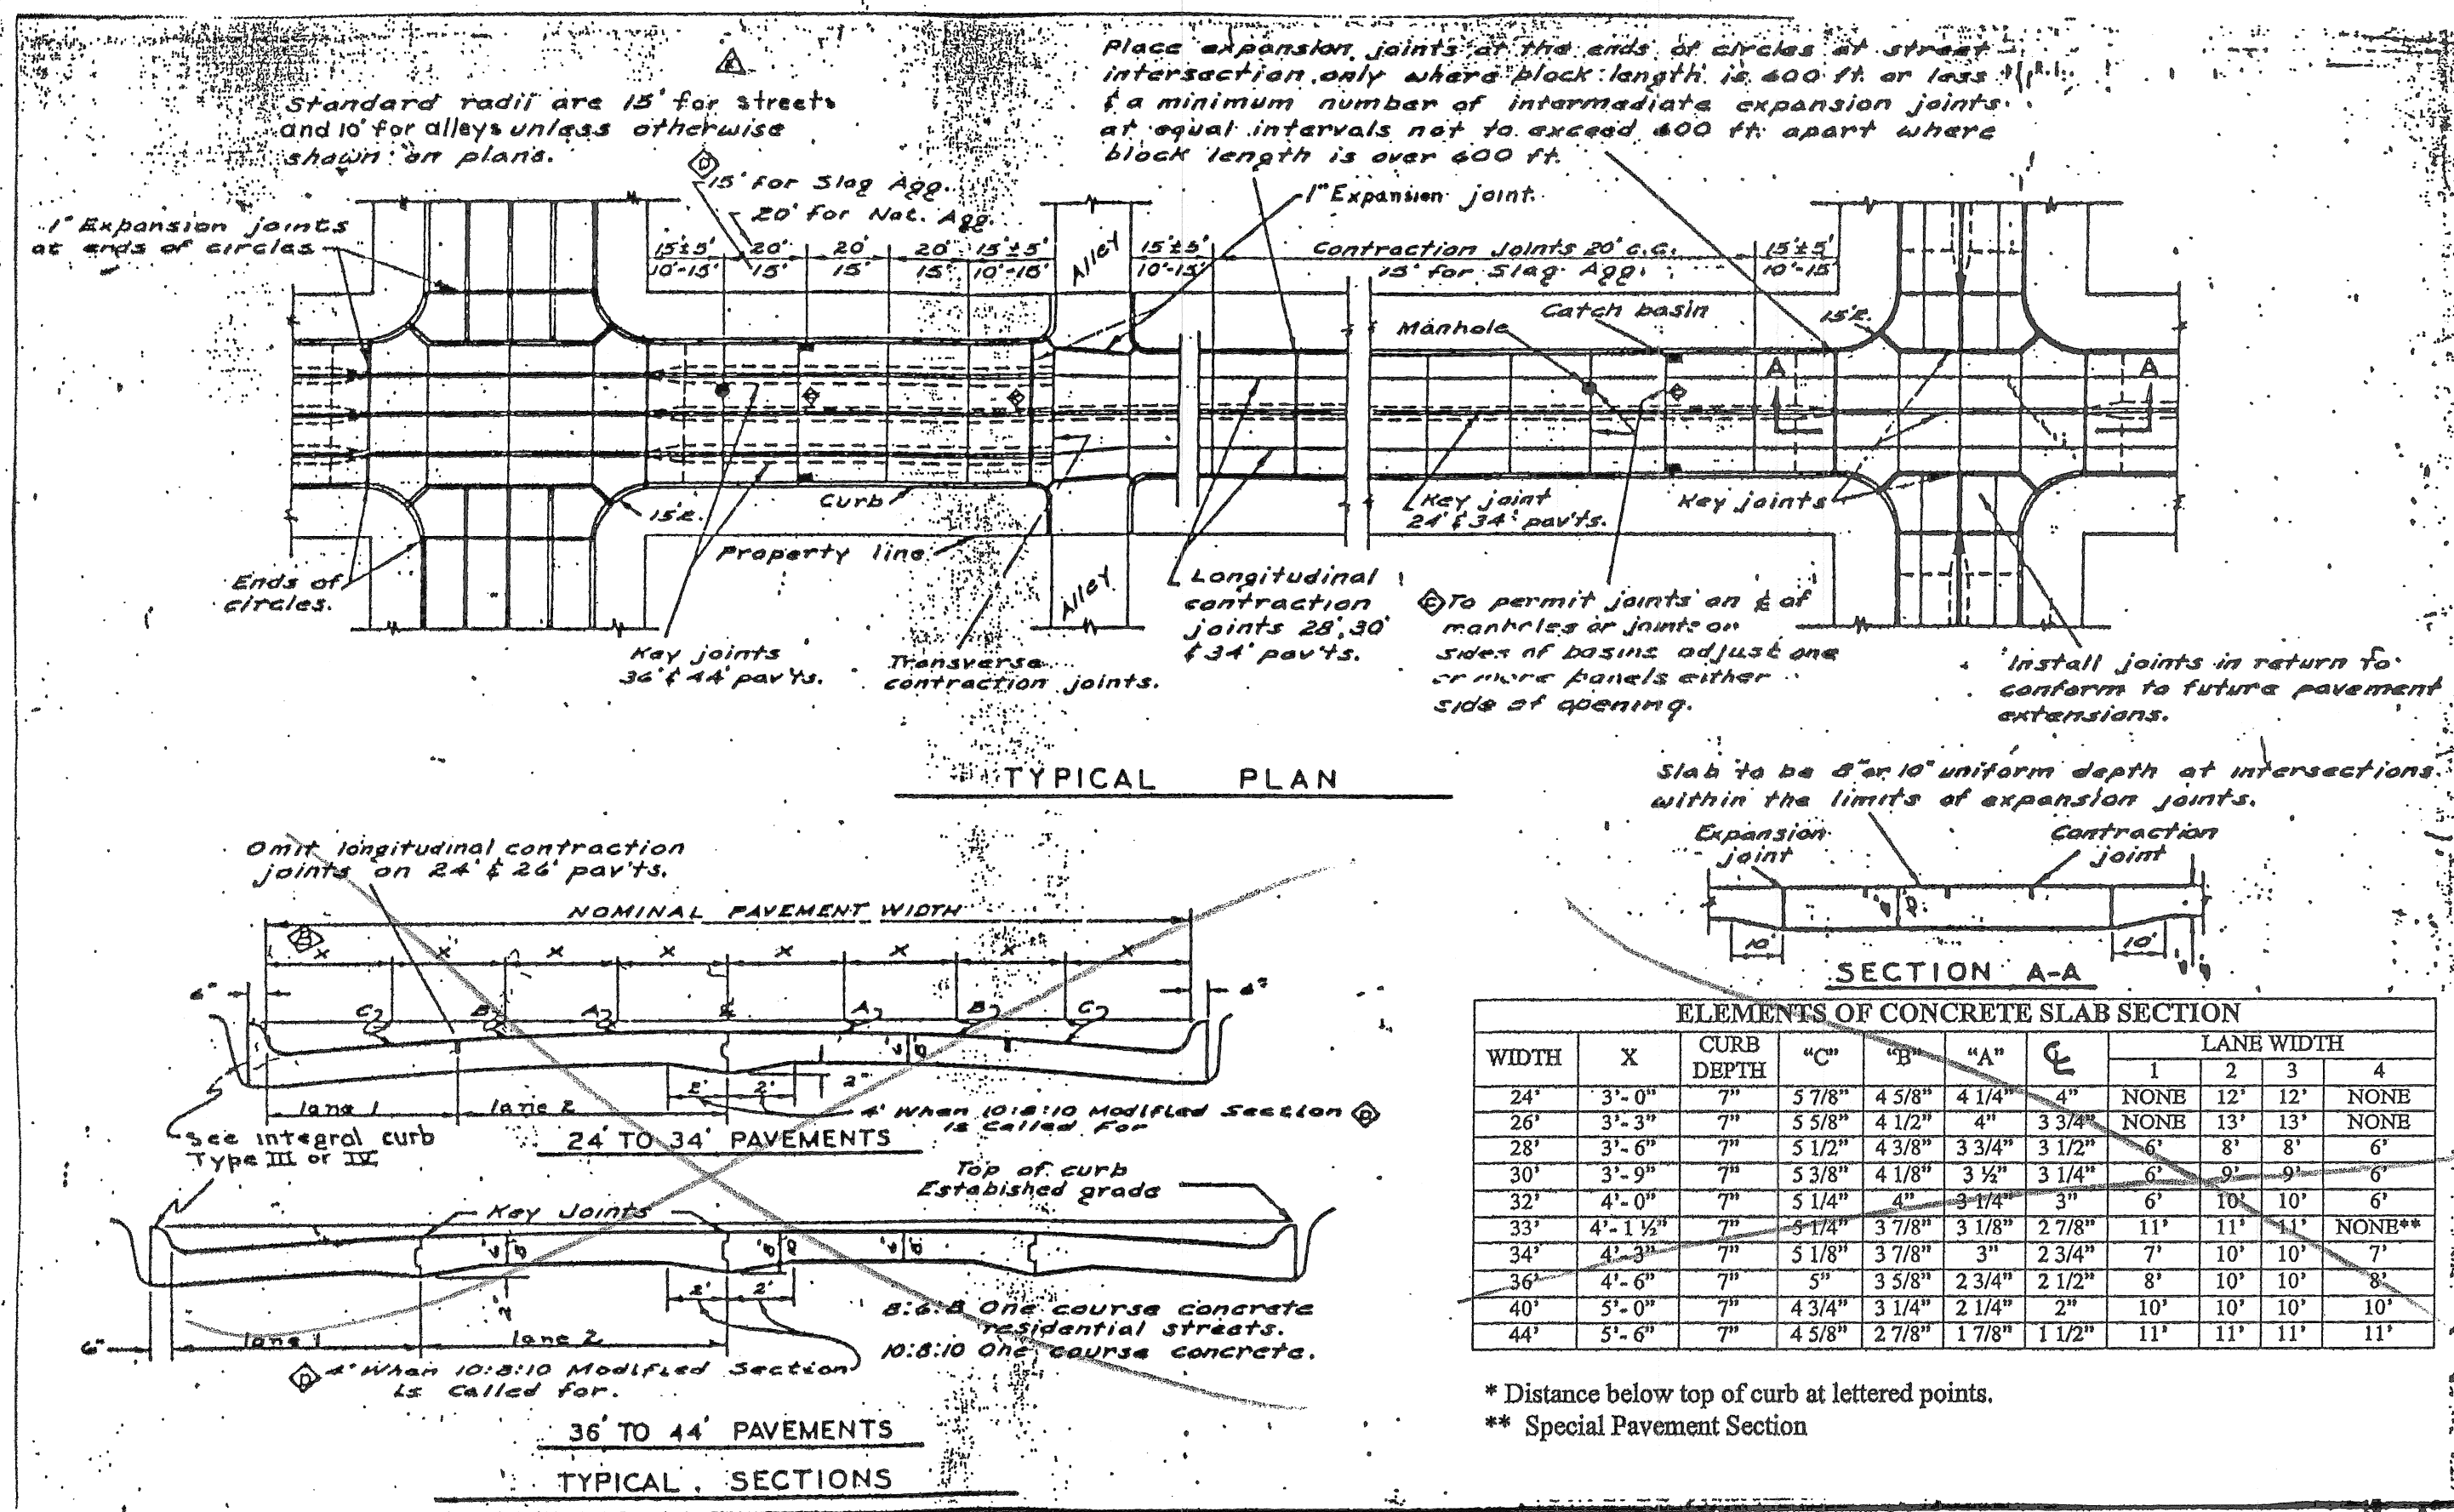 Standard radii are 15' for streets
and 10' for alleys unless otherwise
shown on plans.
Place expansion joints at the ends of circles at street
intersection, only where block length is 600 ft. or less
& a minimum number of intermediate expansion joints
at equal intervals not to exceed 600 ft. apart where
block length is over 600 ft.
15' for Slag Agg.
20' for Nat. Agg.
1" Expansion joint.
1" Expansion joints
at ends of circles
15'±5' 20' 20' 20' 15'±5'
10'-15' 15' 15' 15' 10'-15'
Alley
15'±5' Contraction Joints 20' c.c. 15'±5'
10'-15' 15' for Slag Agg. 10'-15'
Catch basin
Manhole
15'R.
A A
15'R.
Curb
Key joint
24' & 34' pav'ts.
Key joints
Property line
Ends of
circles.
Alley
Key joints
36' & 44' pav'ts.
Transverse
contraction joints.
Longitudinal
contraction
joints 28', 30'
& 34' pav'ts.
C To permit joints on ℄ of
manholes or joints on
sides of basins adjust one
or more panels either
side of opening.
Install joints in return to
conform to future pavement
extensions.
TYPICAL PLAN
Slab to be 8" or 10" uniform depth at intersections
within the limits of expansion joints.
Expansion
joint
Contraction
joint
10' 10'
SECTION A-A
Omit longitudinal contraction
joints on 24' & 26' pav'ts.
NOMINAL PAVEMENT WIDTH
B
X X X X X X X X
6" 6"
C B A ℄ A B C
2' 2' 2"
lane 1 lane 2
4' When 10:8:10 Modified Section D
is Called For
See integral curb
Type III or IV
24' TO 34' PAVEMENTS
Top of curb
Estabished grade
Key Joints
2' 2'
2"
8:6:8 One course concrete
residential streets.
10:8:10 One course concrete.
6" lane 1 lane 2
D 4' When 10:8:10 Modified Section
is Called for.
36' TO 44' PAVEMENTS
TYPICAL SECTIONS
ELEMENTS OF CONCRETE SLAB SECTION
WIDTH X CURB DEPTH "C" "B" "A" ℄ LANE WIDTH
1 2 3 4
24' 3'- 0" 7" 5 7/8" 4 5/8" 4 1/4" 4" NONE 12' 12' NONE
26' 3'- 3" 7" 5 5/8" 4 1/2" 4" 3 3/4" NONE 13' 13' NONE
28' 3'- 6" 7" 5 1/2" 4 3/8" 3 3/4" 3 1/2" 6' 8' 8' 6'
30' 3'- 9" 7" 5 3/8" 4 1/8" 3 ½" 3 1/4" 6' 9' 9' 6'
32' 4'- 0" 7" 5 1/4" 4" 3 1/4" 3" 6' 10' 10' 6'
33' 4'- 1 ½" 7" 5 1/4" 3 7/8" 3 1/8" 2 7/8" 11' 11' 11' NONE**
34' 4'- 3" 7" 5 1/8" 3 7/8" 3" 2 3/4" 7' 10' 10' 7'
36' 4'- 6" 7" 5" 3 5/8" 2 3/4" 2 1/2" 8' 10' 10' 8'
40' 5'- 0" 7" 4 3/4" 3 1/4" 2 1/4" 2" 10' 10' 10' 10'
44' 5'- 6" 7" 4 5/8" 2 7/8" 1 7/8" 1 1/2" 11' 11' 11' 11'
* Distance below top of curb at lettered points.
** Special Pavement Section